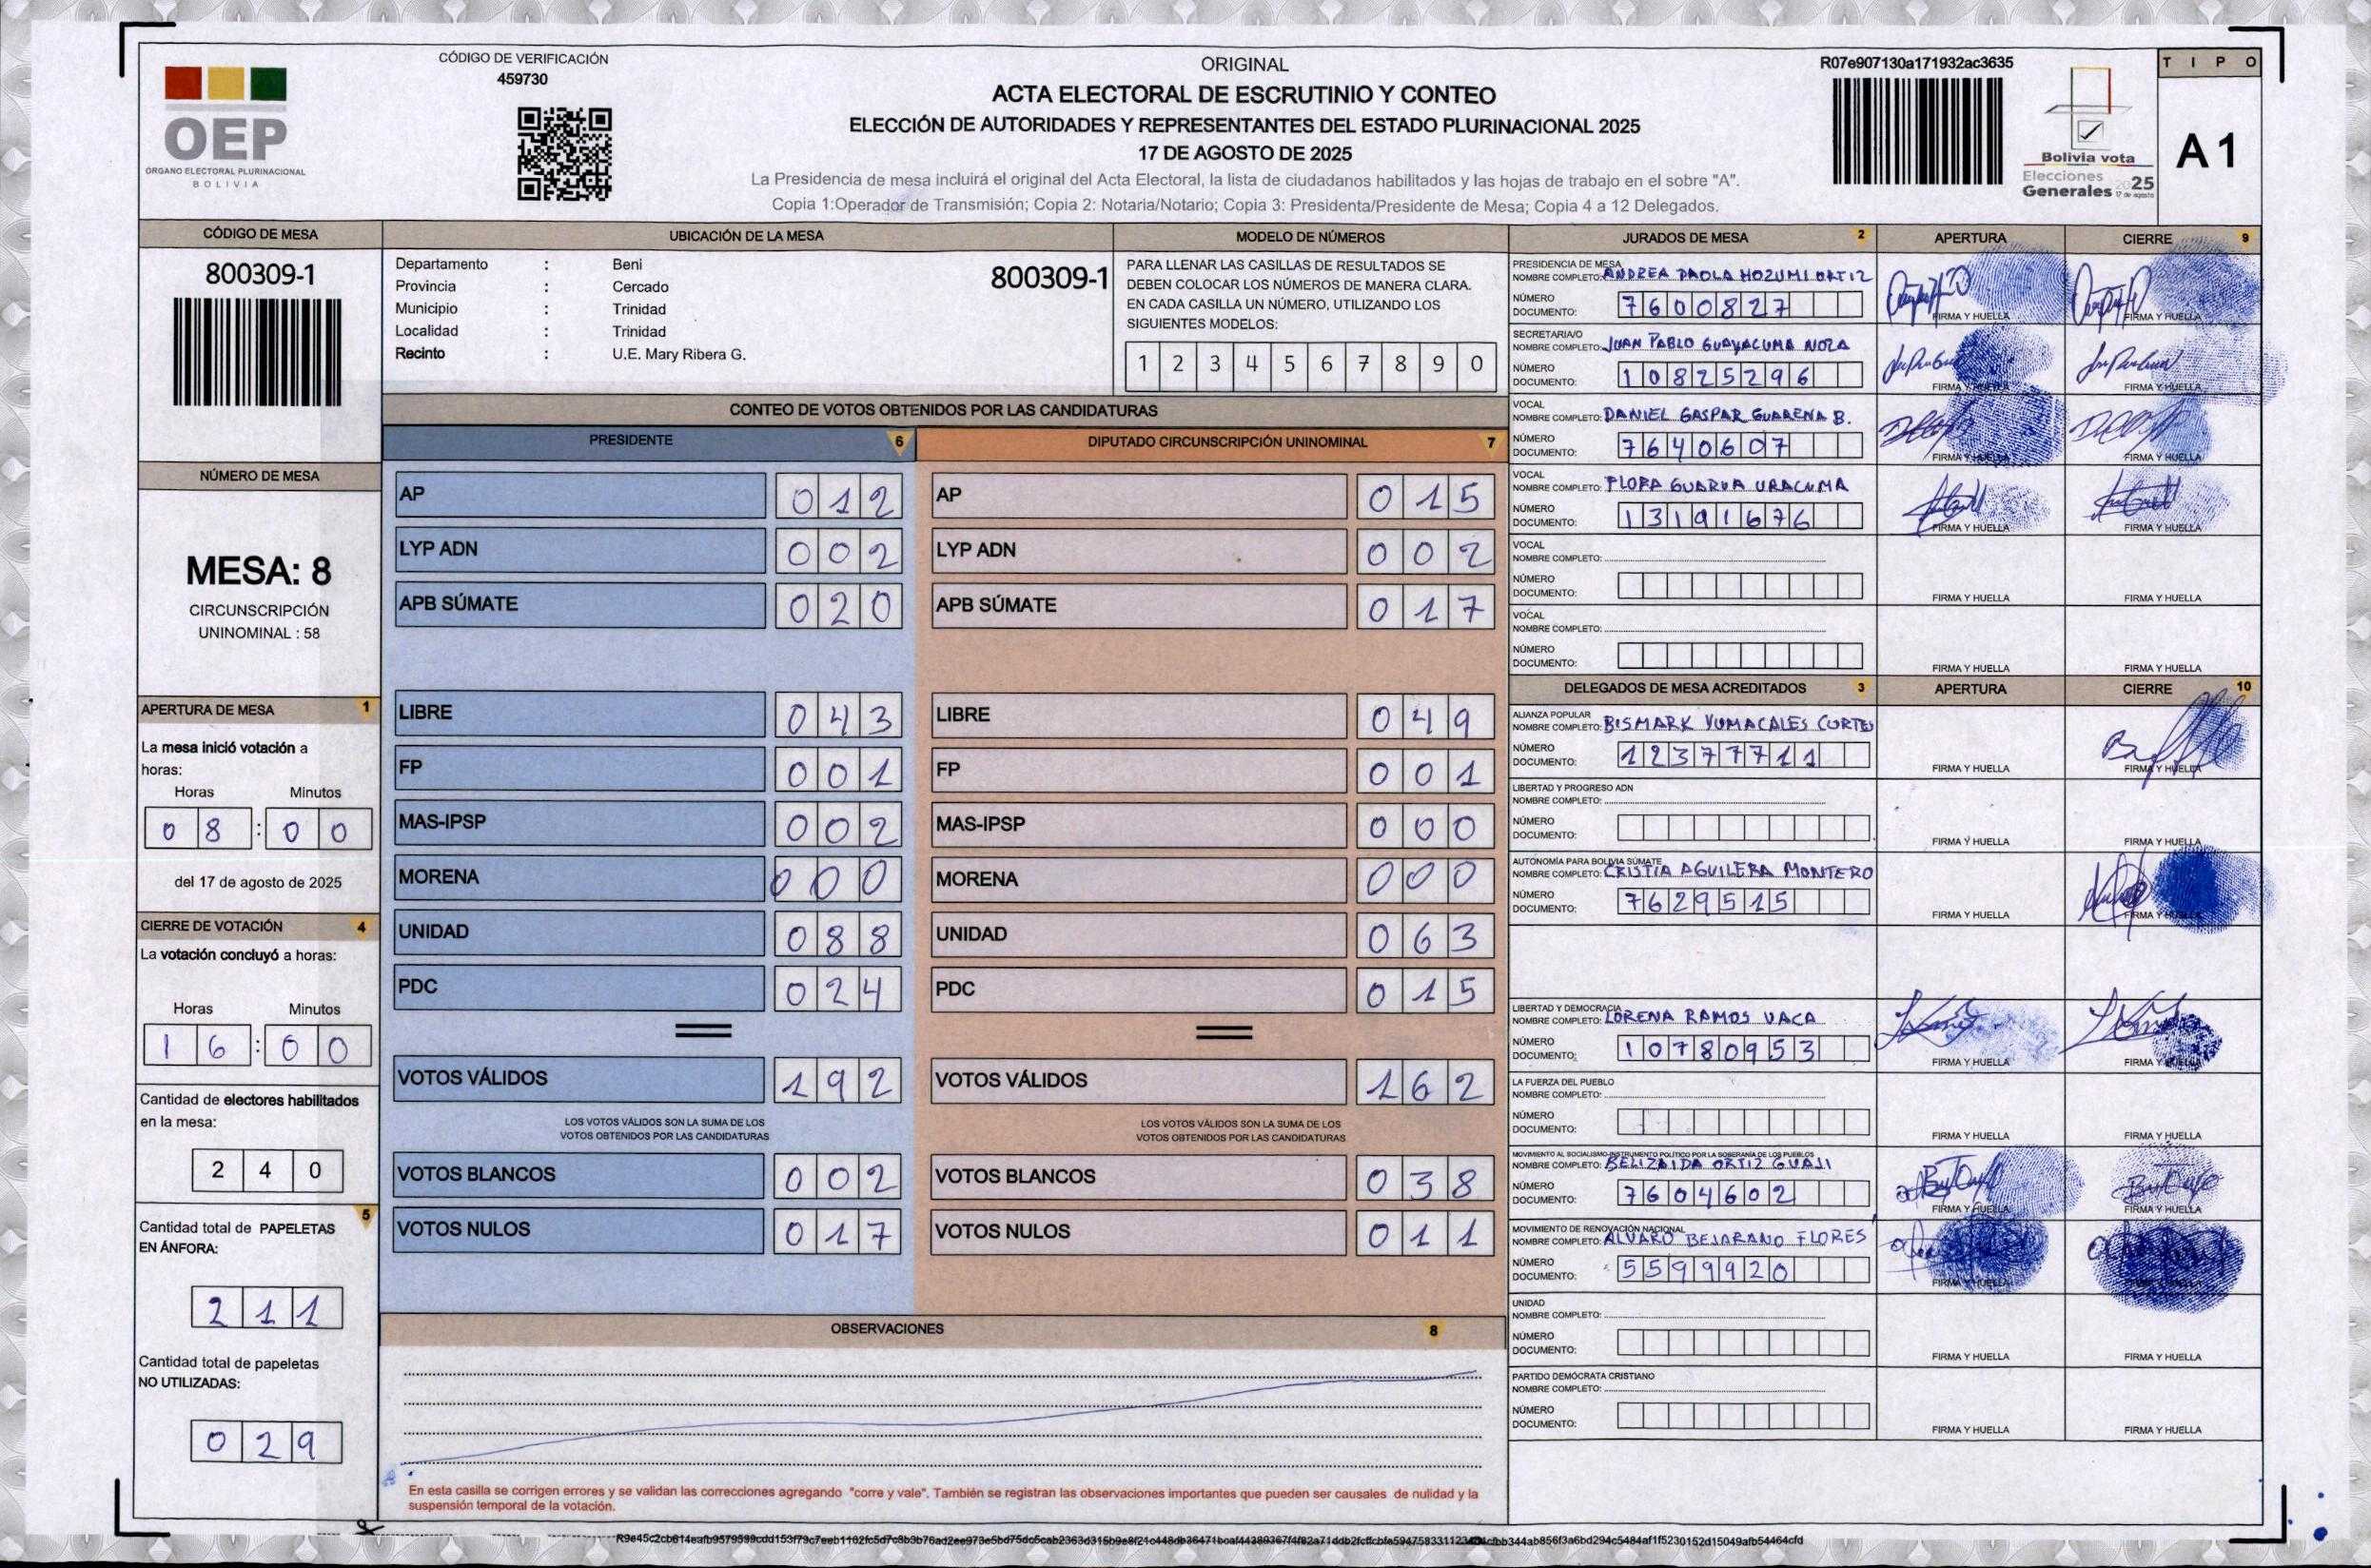 CÓDIGO DE VERIFICACIÓN
459730
OEP
ORGANO ELECTORAL PLURINACIONAL
BOLIVIA
ORIGINAL
ACTA ELECTORAL DE ESCRUTINIO Y CONTEO
ELECCIÓN DE AUTORIDADES Y REPRESENTANTES DEL ESTADO PLURINACIONAL 2025
17 DE AGOSTO DE 2025
La Presidencia de mesa incluirá el original del Acta Electoral, la lista de ciudadanos habilitados y las hojas de trabajo en el sobre "A".
Copia 1:Operador de Transmisión; Copia 2: Notaria/Notario; Copia 3: Presidenta/Presidente de Mesa; Copia 4 a 12 Delegados.
R07e907130a171932ac3635
Bolivia vota
Elecciones
Generales 2025
17 de agosto
TIPO
A1
CÓDIGO DE MESA
800309-1
UBICACIÓN DE LA MESA
Departamento : Beni
Provincia : Cercado
Municipio : Trinidad
Localidad : Trinidad
Recinto : U.E. Mary Ribera G.
800309-1
MODELO DE NÚMEROS
PARA LLENAR LAS CASILLAS DE RESULTADOS SE
DEBEN COLOCAR LOS NÚMEROS DE MANERA CLARA.
EN CADA CASILLA UN NÚMERO, UTILIZANDO LOS
SIGUIENTES MODELOS:
1 2 3 4 5 6 7 8 9 0
NÚMERO DE MESA
MESA: 8
CIRCUNSCRIPCIÓN
UNINOMINAL : 58
APERTURA DE MESA 1
La mesa inició votación a
horas:
Horas Minutos
08:00
del 17 de agosto de 2025
CIERRE DE VOTACIÓN 4
La votación concluyó a horas:
Horas Minutos
16:00
Cantidad de electores habilitados
en la mesa:
240
5
Cantidad total de PAPELETAS
EN ÁNFORA:
211
Cantidad total de papeletas
NO UTILIZADAS:
029
CONTEO DE VOTOS OBTENIDOS POR LAS CANDIDATURAS
PRESIDENTE 6
AP 012
LYP ADN 002
APB SÚMATE 020
LIBRE 043
FP 001
MAS-IPSP 002
MORENA 000
UNIDAD 088
PDC 024
VOTOS VÁLIDOS 192
LOS VOTOS VÁLIDOS SON LA SUMA DE LOS
VOTOS OBTENIDOS POR LAS CANDIDATURAS
VOTOS BLANCOS 002
VOTOS NULOS 017
DIPUTADO CIRCUNSCRIPCIÓN UNINOMINAL 7
AP 015
LYP ADN 002
APB SÚMATE 017
LIBRE 049
FP 001
MAS-IPSP 000
MORENA 000
UNIDAD 063
PDC 015
VOTOS VÁLIDOS 162
LOS VOTOS VÁLIDOS SON LA SUMA DE LOS
VOTOS OBTENIDOS POR LAS CANDIDATURAS
VOTOS BLANCOS 038
VOTOS NULOS 011
OBSERVACIONES 8
En esta casilla se corrigen errores y se validan las correcciones agregando "corre y vale". También se registran las observaciones importantes que pueden ser causales de nulidad y la
suspensión temporal de la votación.
JURADOS DE MESA 2 APERTURA CIERRE 9
PRESIDENCIA DE MESA
NOMBRE COMPLETO: ANDREA PAOLA HOZUMI ORTIZ
NÚMERO
DOCUMENTO: 7600827
FIRMA Y HUELLA FIRMA Y HUELLA
SECRETARIA/O
NOMBRE COMPLETO: JUAN PABLO GUAYACUMA NOZA
NÚMERO
DOCUMENTO: 10825296
FIRMA Y HUELLA FIRMA Y HUELLA
VOCAL
NOMBRE COMPLETO: DANIEL GASPAR GUARENA B.
NÚMERO
DOCUMENTO: 7640607
FIRMA Y HUELLA FIRMA Y HUELLA
VOCAL
NOMBRE COMPLETO: FLORA GUARUA URACUMA
NÚMERO
DOCUMENTO: 13191676
FIRMA Y HUELLA FIRMA Y HUELLA
VOCAL
NOMBRE COMPLETO:
NÚMERO
DOCUMENTO:
FIRMA Y HUELLA FIRMA Y HUELLA
VOCAL
NOMBRE COMPLETO:
NÚMERO
DOCUMENTO:
FIRMA Y HUELLA FIRMA Y HUELLA
DELEGADOS DE MESA ACREDITADOS 3 APERTURA CIERRE 10
ALIANZA POPULAR
NOMBRE COMPLETO: BISMARK YUMACALES CORTES
NÚMERO
DOCUMENTO: 12377711
FIRMA Y HUELLA FIRMA Y HUELLA
LIBERTAD Y PROGRESO ADN
NOMBRE COMPLETO:
NÚMERO
DOCUMENTO:
FIRMA Y HUELLA FIRMA Y HUELLA
AUTONOMÍA PARA BOLIVIA SÚMATE
NOMBRE COMPLETO: CRISTIA AGUILERA MONTERO
NÚMERO
DOCUMENTO: 7629515
FIRMA Y HUELLA FIRMA Y HUELLA
LIBERTAD Y DEMOCRACIA
NOMBRE COMPLETO: LORENA RAMOS VACA
NÚMERO
DOCUMENTO: 10780953
FIRMA Y HUELLA FIRMA Y HUELLA
LA FUERZA DEL PUEBLO
NOMBRE COMPLETO:
NÚMERO
DOCUMENTO:
FIRMA Y HUELLA FIRMA Y HUELLA
MOVIMIENTO AL SOCIALISMO-INSTRUMENTO POLÍTICO POR LA SOBERANÍA DE LOS PUEBLOS
NOMBRE COMPLETO: BELIZAIDA ORTIZ GUAJI
NÚMERO
DOCUMENTO: 7604602
FIRMA Y HUELLA FIRMA Y HUELLA
MOVIMIENTO DE RENOVACIÓN NACIONAL
NOMBRE COMPLETO: ALVARO BEJARANO FLORES
NÚMERO
DOCUMENTO: 5599920
FIRMA Y HUELLA FIRMA Y HUELLA
UNIDAD
NOMBRE COMPLETO:
NÚMERO
DOCUMENTO:
FIRMA Y HUELLA FIRMA Y HUELLA
PARTIDO DEMÓCRATA CRISTIANO
NOMBRE COMPLETO:
NÚMERO
DOCUMENTO:
FIRMA Y HUELLA FIRMA Y HUELLA